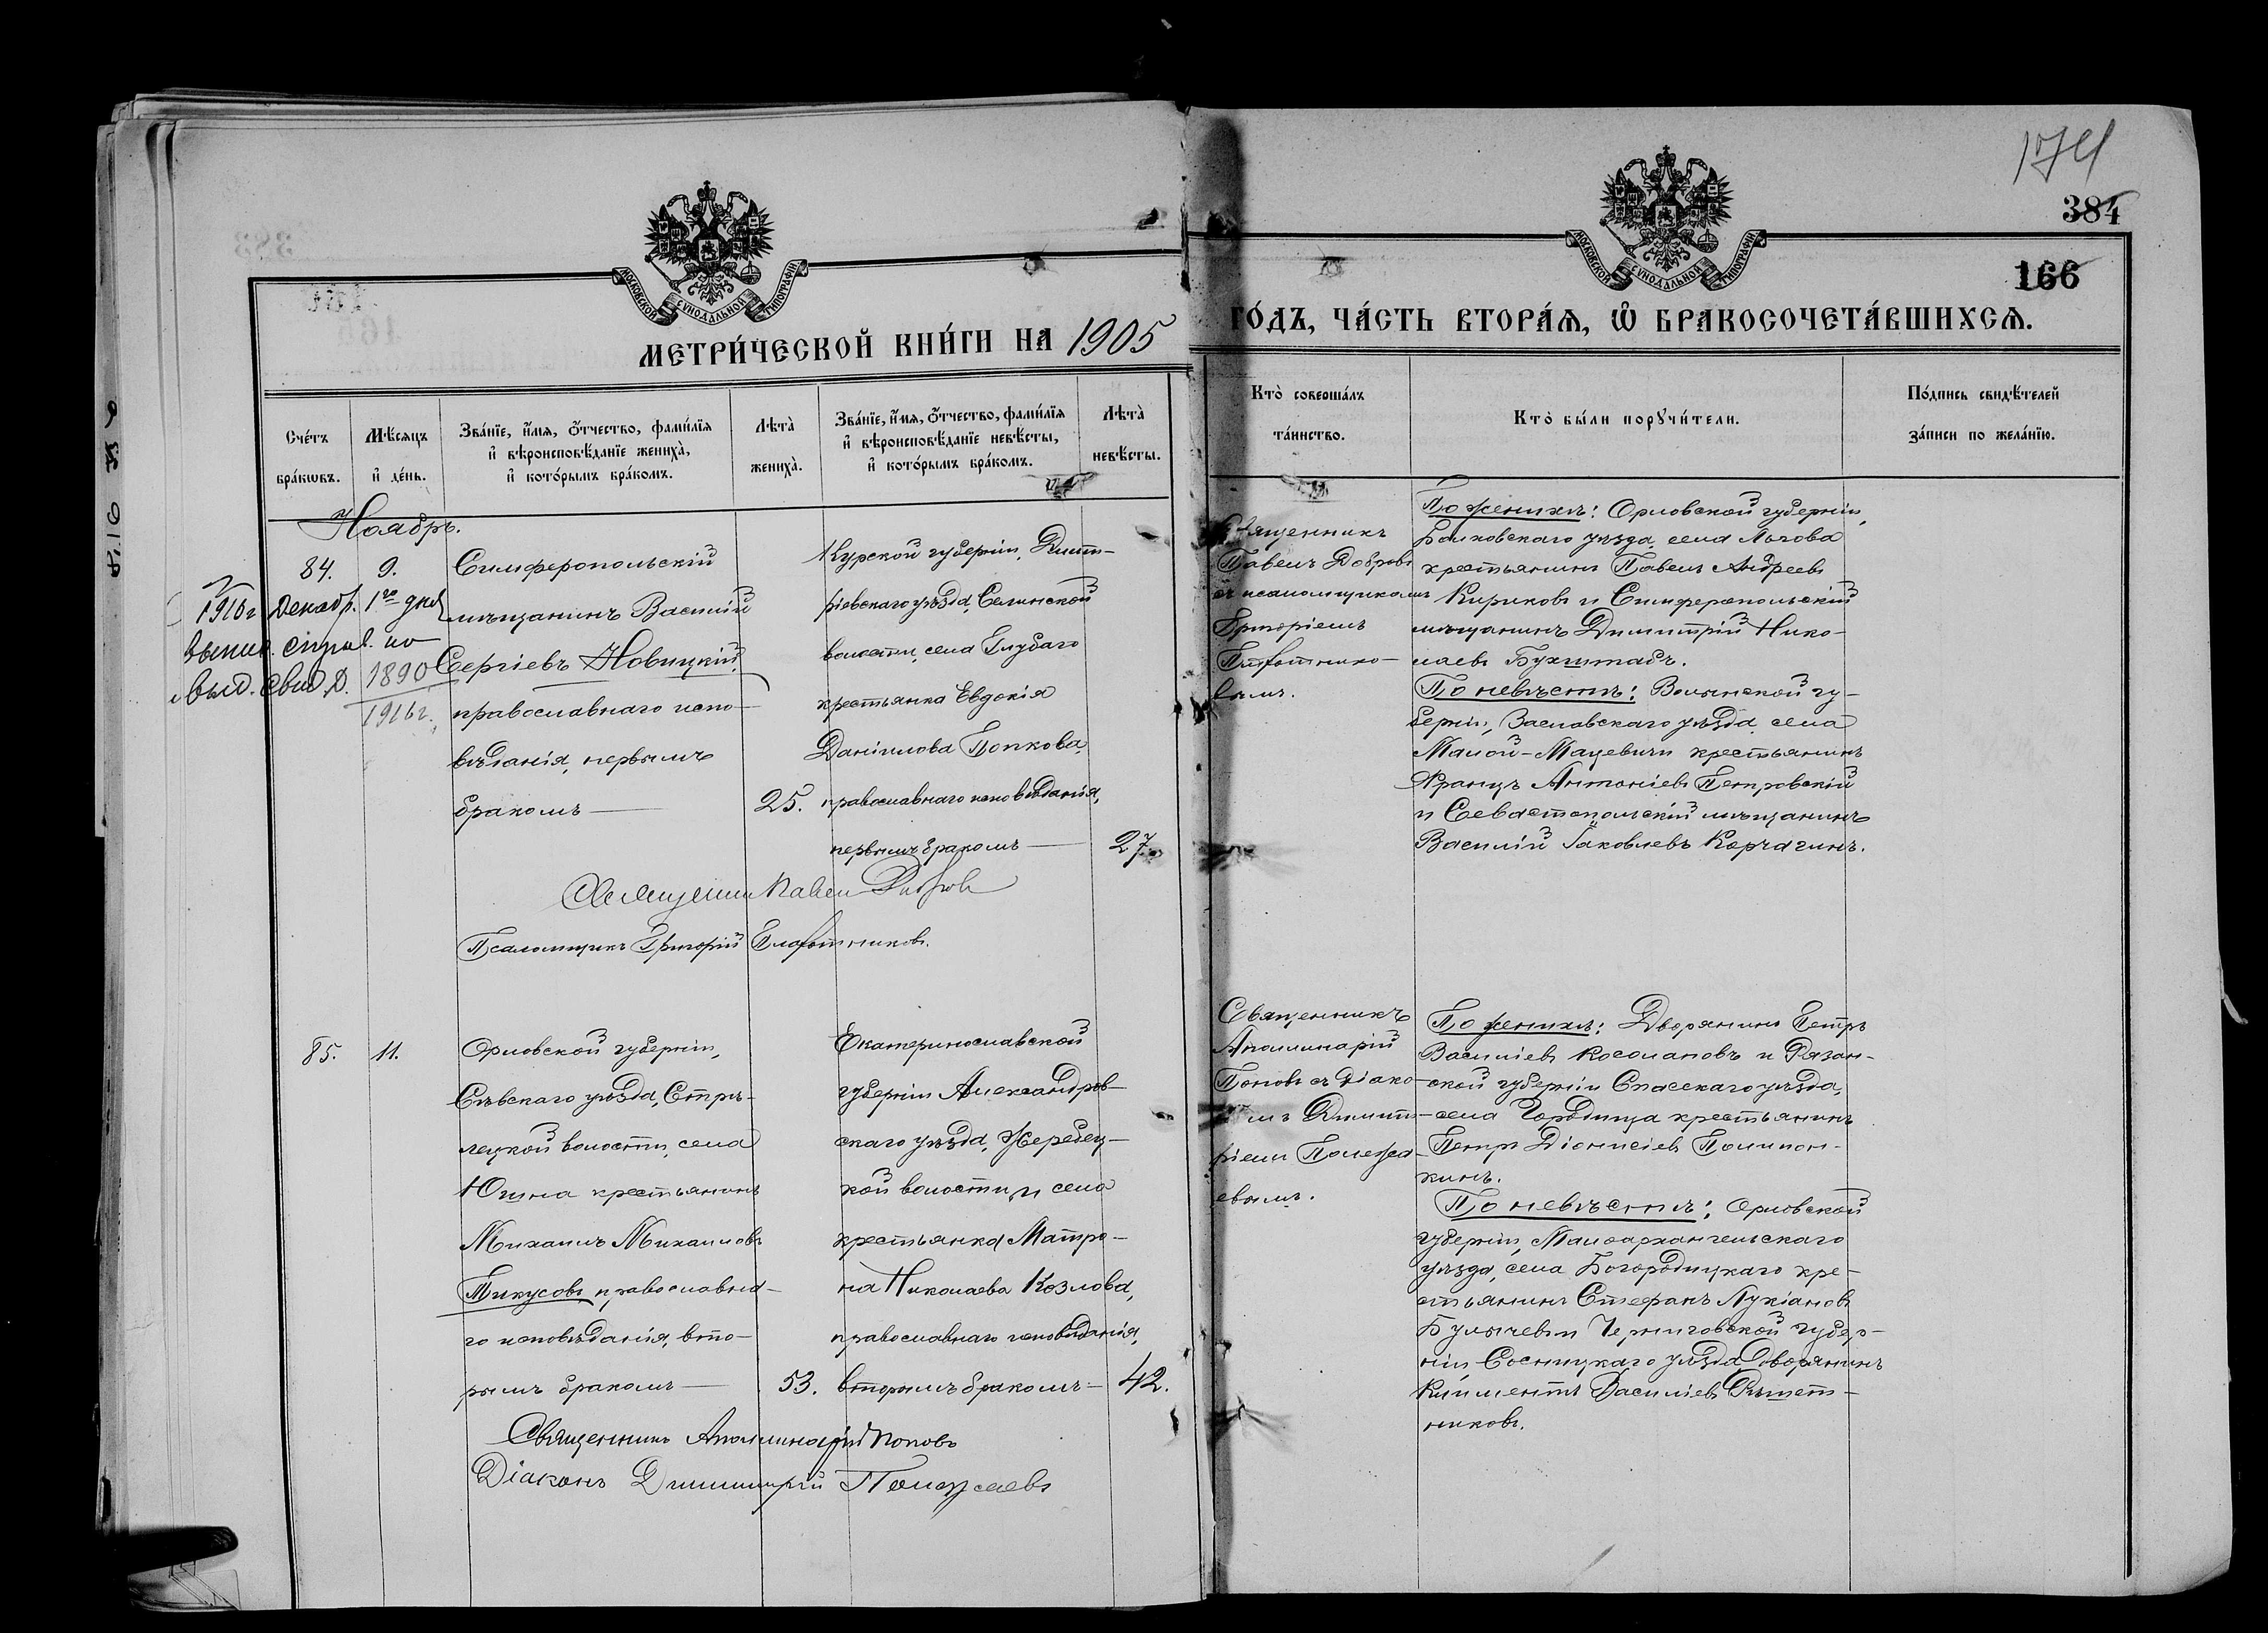 174
384
166
МОСКОВСКОЙ СѴНОДАЛЬНОЙ ТИПОГРАФІИ
МОСКОВСКОЙ СѴНОДАЛЬНОЙ ТИПОГРАФІИ
МЕТРИ́ЧЕСКОЙ КНИ́ГИ НА 1905
ГО́ДЪ, ЧА́СТЬ ВТОРА́Я, Ѡ҆ БРАКОСОЧЕТА́ВШИХСЯ.
Сче́тъ бра́кѡвъ.
Мѣ́сяцъ и҆ де́нь.
Зва́нїе, и҆́мя, ѻ҆́тчество, фами́лїя
и҆ вѣроисповѣ́данїе жениха̀,
и҆ кото́рымъ бра́комъ.
Лѣта̀ жениха̀.
Зва́нїе, и҆́мя, ѻ҆́тчество, фами́лїя
и҆ вѣроисповѣ́данїе невѣ́сты,
и҆ кото́рымъ бра́комъ.
Лѣта̀ невѣ́сты.
Кто̀ соверша́лъ
та́инство.
Кто̀ бы́ли порꙋчи́тели.
По́дпись свидѣ́телей
за́писи по жела́нїю.
Ноябрь.
84.
9.
1916 г. Декабр. 1го дня
1890
1916 г.
Симферопольскій
мѣщанинъ Василій
Сергіевъ Новицкій,
православнаго испо-
вѣданія, первымъ
бракомъ
25.
Курской губерніи, Дмит-
ріевскаго уѣзда, Селинской
волости, села Глубаго
крестьянка Евдокія
Даніилова Попкова,
православнаго исповѣданія,
первымъ бракомъ
27.
Священникъ
Павелъ Добровъ
съ псаломщикомъ
Григоріемъ
Плотнико-
вымъ.
По женихѣ: Орловской губерніи,
Болховскаго уѣзда, села Льгова
крестьянинъ Павелъ Андреевъ
Кириковъ и Симферопольскій
мѣщанинъ Димитрій Нико-
лаевъ Бухштабъ.
По невѣстѣ: Волынской гу-
берніи, Заславскаго уѣзда, села
Малой-Мацевичи крестьянинъ
Францъ Антоніевъ Петровскій
и Севастопольскій мѣщанинъ
Василій Іаковлевъ Корчагинъ.
Священникъ Павелъ Добровъ
Псаломщикъ Григорій Плотниковъ.
85.
11.
Орловской губерніи,
Сѣвскаго уѣзда, Стрѣ-
лецкой волости, села
Юшина крестьянинъ
Михаилъ Михаиловъ
Тикусовъ православна-
го исповѣданія, вто-
рымъ бракомъ
53.
Екатеринославской
губерніи Александров-
скаго уѣзда, Жеребец-
кой волости, и села
крестьянка Матро-
на Николаева Козлова,
православнаго исповѣданія,
вторымъ бракомъ
42.
Священникъ
Аполлинарій
Поповъ съ діако-
номъ Димит-
ріемъ Полежа-
евымъ.
По женихѣ: Дворянинъ Петръ
Василіевъ Косолаповъ и Рязан-
ской губерніи Спасскаго уѣзда,
села Городища крестьянинъ
Петръ Діонисіевъ Полипон-
кинъ.
По невѣстѣ: Орловской
губерніи, Малоархангельскаго
уѣзда, села Богородицкаго кре-
стьянинъ Стефанъ Лукіановъ
Булычевъ и Черниговской губер-
ніи Сосницкаго уѣзда дворянинъ
Климентъ Василіевъ Рѣшет-
никовъ.
Священникъ Аполлинарій Поповъ
Діаконъ Димитрій Полежаевъ